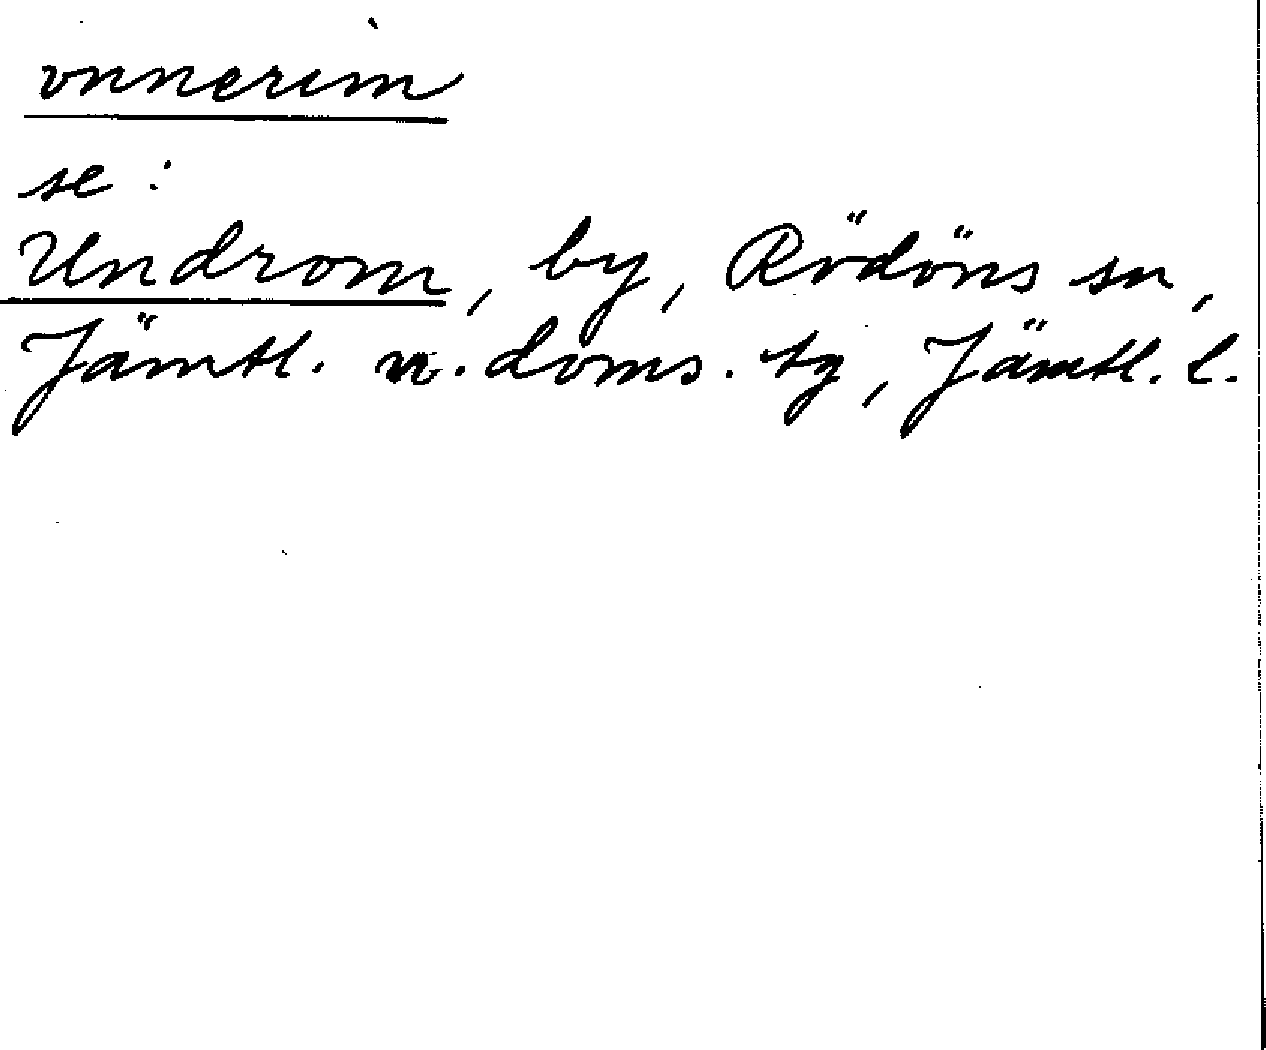 vnnerim
se:
Undrom, by, Rödöns sn,
Jämtl. n. doms. tg, Jämtl. l.